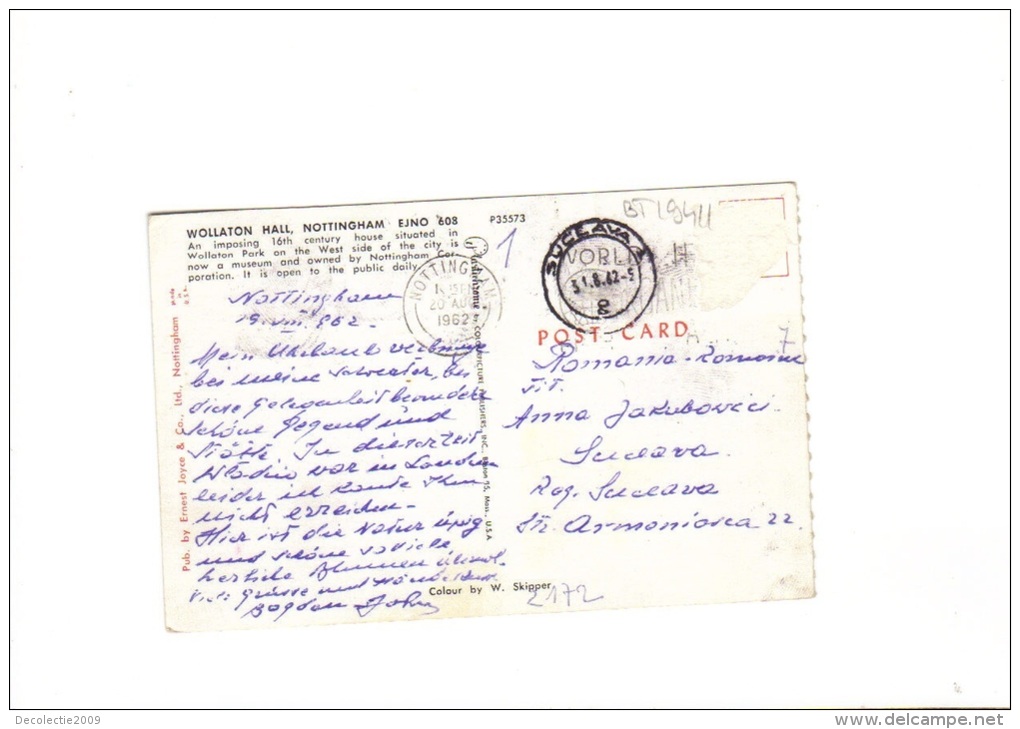 WOLLATON HALL, NOTTINGHAM EJNO 608
An imposing 16th century house situated in
Wollaton Park on the West side of the city is
now a museum and owned by Nottingham Cor
poration. It is open to the public daily
P35573
BT1941
1
NOTTINGHAM
20 AUG
1962
SUCEAVA
31.8.62-5
8
WORL
POST CARD
7
Nottingham
19.VIII.962-
Mein Uhrlaub verbringe
bei meine schwester, bei
diese Gelegenheit besonders
schöne Gegend und
Städte. In dieser Zeit
war in London
leider ich konte Ihm
nicht erreichen-
Hier ist die Natur üpig
und schöne so viele
herliche Blumen überal.
Viele Grüsse und Handküsse
Bogdan John
Romania-
Tit.
Anna Jakubovici
Suceava.
Reg. Suceava
Str. Armeniasca 22.
Colour by W. Skipper
2172
Pub. by Ernest Joyce & Co., Ltd., Nottingham
Made in U.S.A.
PUBLISHERS, INC., Boston 15, Mass., U.S.A.
Decolectie2009
www.delcampe.net